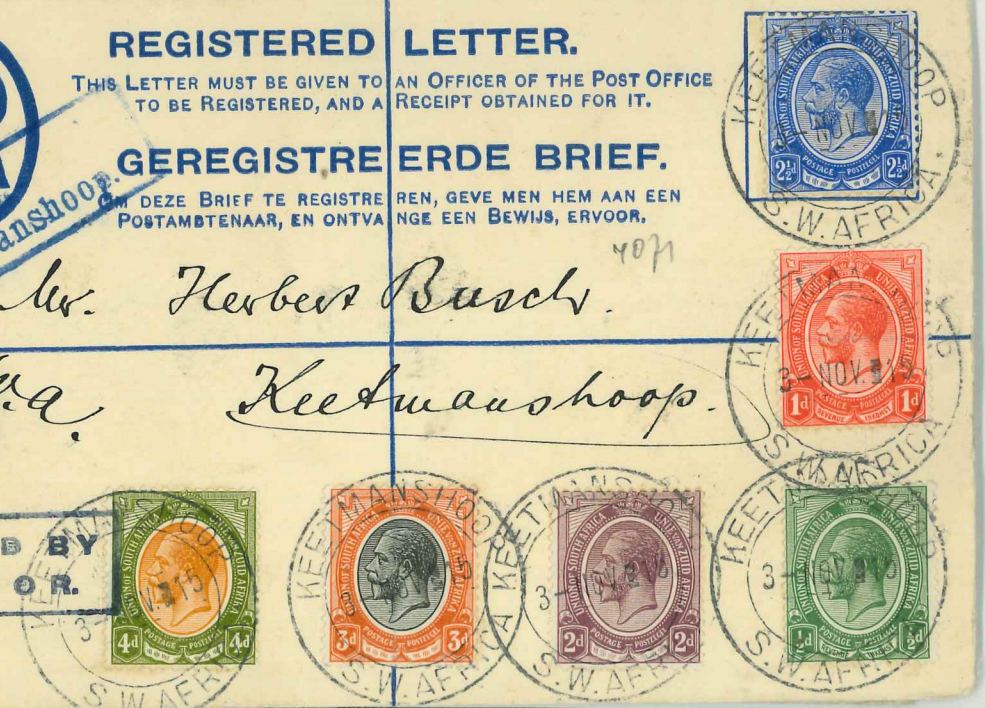 REGISTERED LETTER.
THIS LETTER MUST BE GIVEN TO AN OFFICER OF THE POST OFFICE
TO BE REGISTERED, AND A RECEIPT OBTAINED FOR IT.
GEREGISTREERDE BRIEF.
DEZE BRIEF TE REGISTREREN, GEVE MEN HEM AAN EEN
POSTAMBTENAAR, EN ONTVANGE EEN BEWIJS, ERVOOR.
anshoop.
4071
Mr. Herbert Busch.
Keetmanshoop.
D BY
OR.
UNION OF SOUTH AFRICA UNIE VAN ZUID AFRIKA
POSTAGE POSTZEGEL
2½d 2½d
NOV.
S.W.AFRICA.
UNION OF SOUTH AFRICA UNIE VAN ZUID AFRIKA
POSTAGE POSTZEGEL
REVENUE INKOMST
1d 1d
3-NOV. 15
S.W.AFRICA
UNION OF SOUTH AFRICA UNIE VAN ZUID AFRIKA
POSTAGE POSTZEGEL
4d 4d
15
S.W.AFRI
KEETMANSHOOP
UNION OF SOUTH AFRICA UNIE VAN ZUID AFRIKA
POSTAGE POSTZEGEL
3d 3d
S.W.AFRICA
UNION OF SOUTH AFRICA UNIE VAN ZUID AFRIKA
POSTAGE POSTZEGEL
2d 2d
3-NOV. 15
S.W.AFRICA
UNION OF SOUTH AFRICA UNIE VAN ZUID AFRIKA
POSTAGE POSTZEGEL
½d ½d
3-NOV 15
S.W.AFRICA